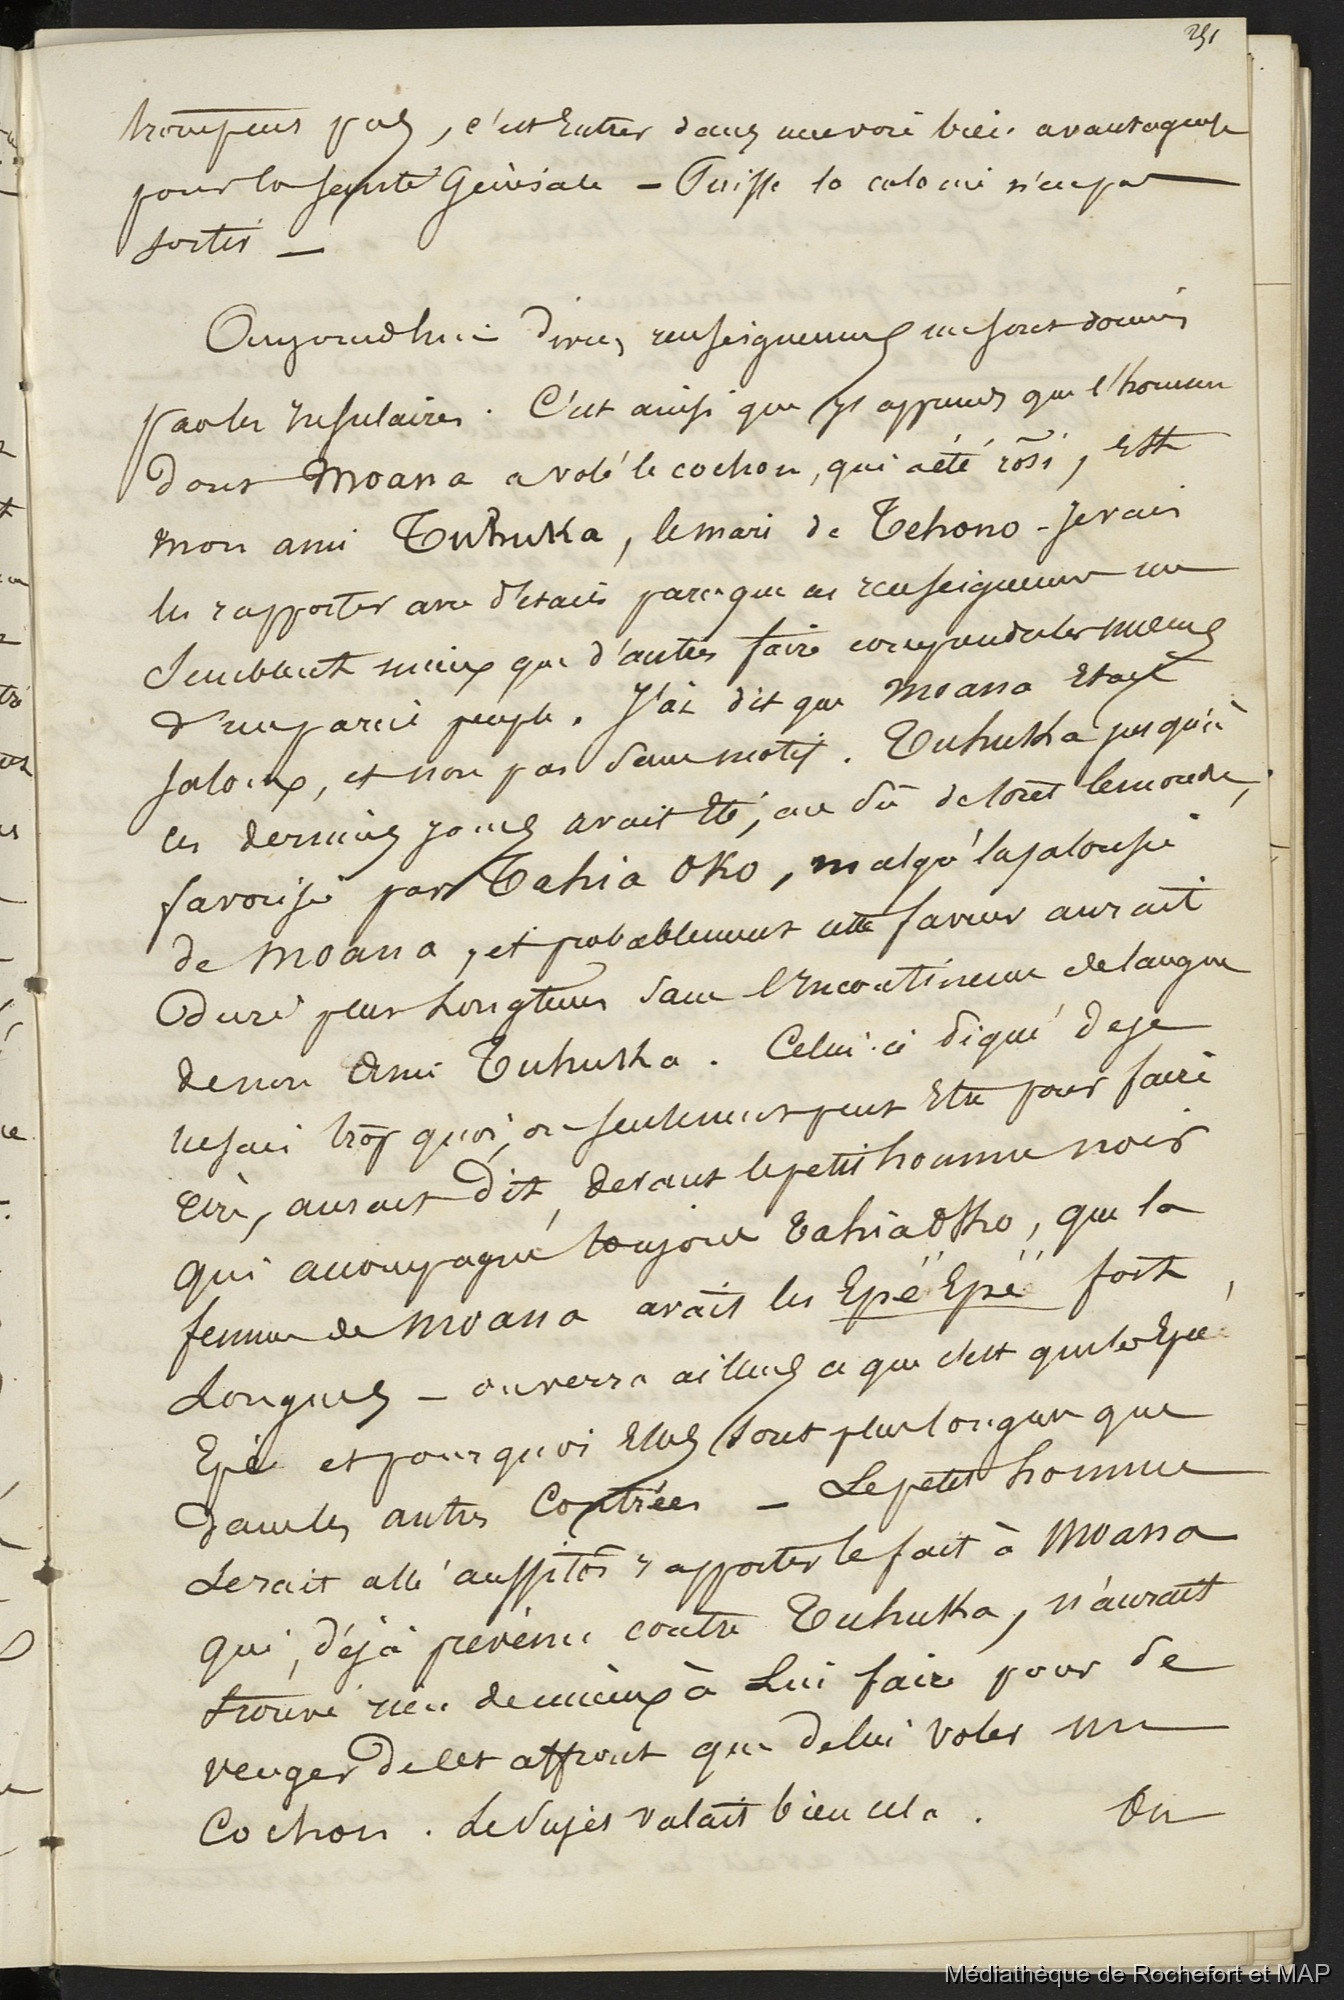 251
trompeurs pas, c'est entrer dans une voie bien avantageuse
pour la santé Générale - Puisse la colonie n'en pas
sortir -
Aujourd'hui divers renseignemens me sont donnés
par les insulaires. C'est ainsi que j'apprends que l'homme
dont Moana a volé le cochon, qui a été rôti, est
mon ami Tuhuka, le mari de Tehono - Je vais
les rapporter avec détails parce que ces renseignemens me
semblent mieux que d'autres faire comprendre les mœurs
d'un pareil peuple. J'ai dit que Moana etait
jaloux, et non pas sans motif. Tuhuka jusqu'à
ces derniers jours avait été, au sû de tout le monde,
favorisé par Tahia Oko, malgré la jalousie
de Moana, et probablement cette faveur aurait
duré plus longtems sans l'incontinence de langue
de mon ami Tuhuka. Celui-ci piqué de je
ne sais trop quoi, ou seulement peut etre pour faire
rire, aurait dit, devant le petit homme noir
qui accompagne toujours Tahia Oko, que la
femme de Moana avait les Epë Epë fort
Longues - on verra ailleurs ce que c'est que les Epé
Epé et pourquoi elles sont plus longues que
dans les autres Contrées - Le petit homme
serait allé aussitôt rapporter le fait à Moana
qui, déjà prévenu contre Tuhuka, n'aurait
trouvé rien de mieux à Lui faire pour se
venger de cet affront que de lui voler un
Cochon. Le sujet valait bien cela. On
Médiathèque de Rochefort et MAP